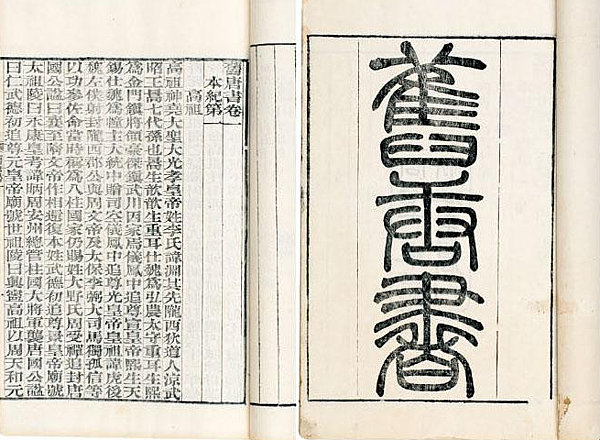 舊唐書
舊唐書卷一
本紀第一
高祖
高祖神堯大聖大光孝皇帝姓李氏諱淵其先隴西狄道人涼武
昭王暠七代孫也暠生歆歆生重耳仕魏爲弘農太守重耳生熙
爲金門鎮將領豪傑鎮武川因家焉儀鳳中追尊宣皇帝熙生天
錫仕魏爲幢主大統中贈司空儀鳳中追尊光皇帝皇祖諱虎後
魏左僕射封隴西郡公與周文帝及太保李弼大司馬獨孤信等
以功參佐命當時稱爲八柱國家仍賜姓大野氏周受禪追封唐
國公諡曰襄至隋文帝作相還復本姓武德初追尊景皇帝廟號
太祖陵曰永康皇考諱昞周安州總管柱國大將軍襲唐國公諡
曰仁武德初追尊元皇帝廟號世祖陵曰興寧高祖以周天和元